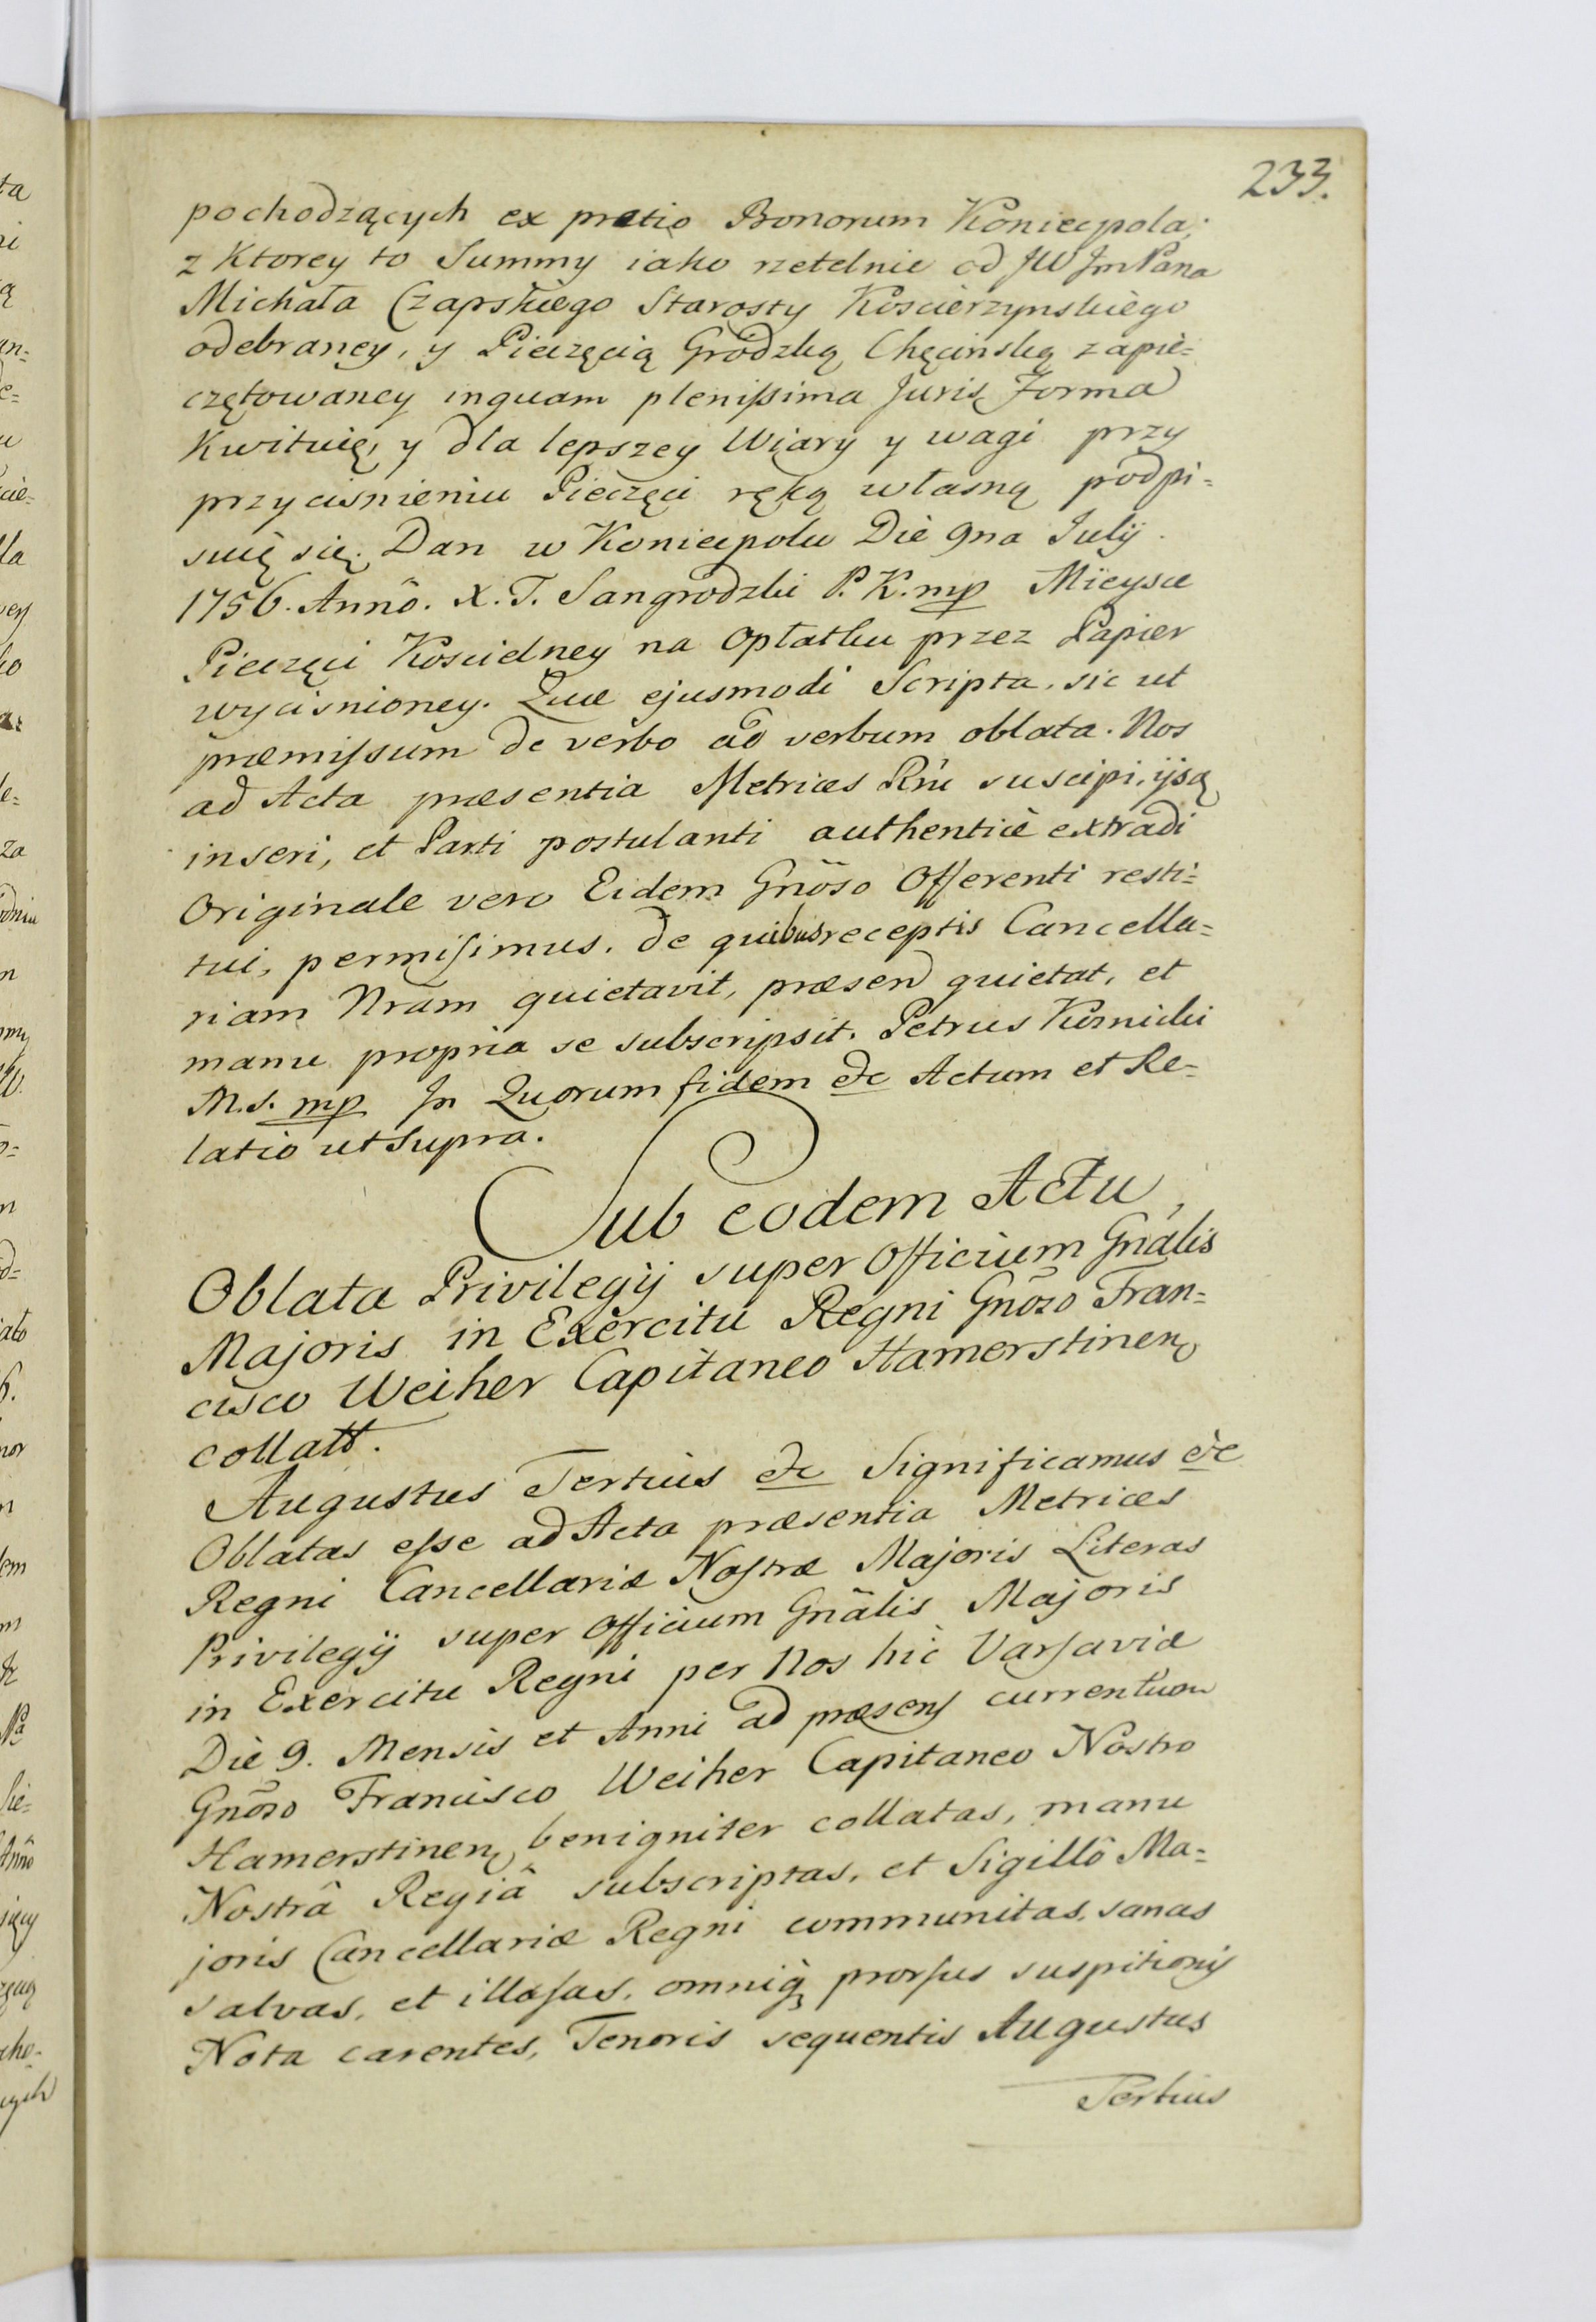 233.
pochodzących ex pretio Bonorum Koniecpola;
z Ktorey to Summy iako rzetelnie od JW JmPana
Michała Czapskiego Starosty Koscierzynskiego
odebraney, y Pieczęcią Grodzką Chęcinską zapie=
czętowaney inquam plenissima Juris Forma
Kwituię, y dla lepszey Wiary y wagi przy
przycisnieniu Pieczęci ręką własną podpi=
suię się. Dan w Koniecpolu Die 9na Julij
1756. Annô. X. J. Sangrodzki P. K. mp Mieysce
Pieczęci Koscielney na Opłatku przez Papier
wycisnioney. Quæ ejusmodi Scripta, sic ut
præmissum de verbo ad verbum oblata. Nos
ad Acta præsentia Metrices Rni suscipi, ijsq
inseri, et Parti postulanti authenticè extradi
Originale vero Eidem Gnõso Offerenti resti=
tui, permisimus. de quibus receptis Cancella=
riam Nram quietavit, præsen quietat, et
manu propria se subscripsit. Petrus Kornicki
M. S. mp In Quorum fidem &c Actum et Re=
latio ut Supra.
Sub eodem Actu,
Oblata Privilegij super Officium Gnãlis
Majoris in Exercitu Regni Gnõso Fran=
cisco Weiher Capitaneo Hamerstinen
collatt.
Augustus Tertius &c Significamus &c
Oblatas esse ad Acta præsentia Metrices
Regni Cancellariæ Nostræ Majoris Literas
Privilegij super Officium Gnãlis Majoris
in Exercitu Regni per Nos hic Varsaviæ
Die 9. Mensis et Anni ad præsens currentium
Gnõso Francisco Weiher Capitaneo Nostro
Hamerstinen benigniter collatas, manu
Nostrâ Regiâ subscriptas, et Sigillô Ma=
joris Cancellariæ Regni communitas, sanas
salvas, et illæsas, omniq prorsus suspitionis
Nota carentes, Tenoris sequentis Augustus
Tertius